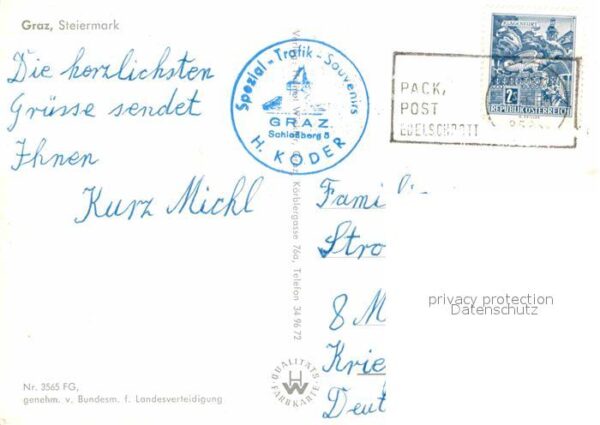 Graz, Steiermark
Die herzlichsten
Grüsse sendet
Ihnen
Kurz Michl
Nr. 3565 FG,
genehm. v. Bundesm. f. Landesverteidigung
Spezial - Trafik - Souvenirs
GRAZ
Schloßberg 5
H. KODER
Körblergasse 76a, Telefon 34 96 72
QUALITÄTS
FARBKARTE
KLAGENFURT
2S
REPUBLIK ÖSTERREICH
PACK,
POST
EDELSCHROTT
Fami
Stro
8 M
Krie
Deut
privacy protection
Datenschutz